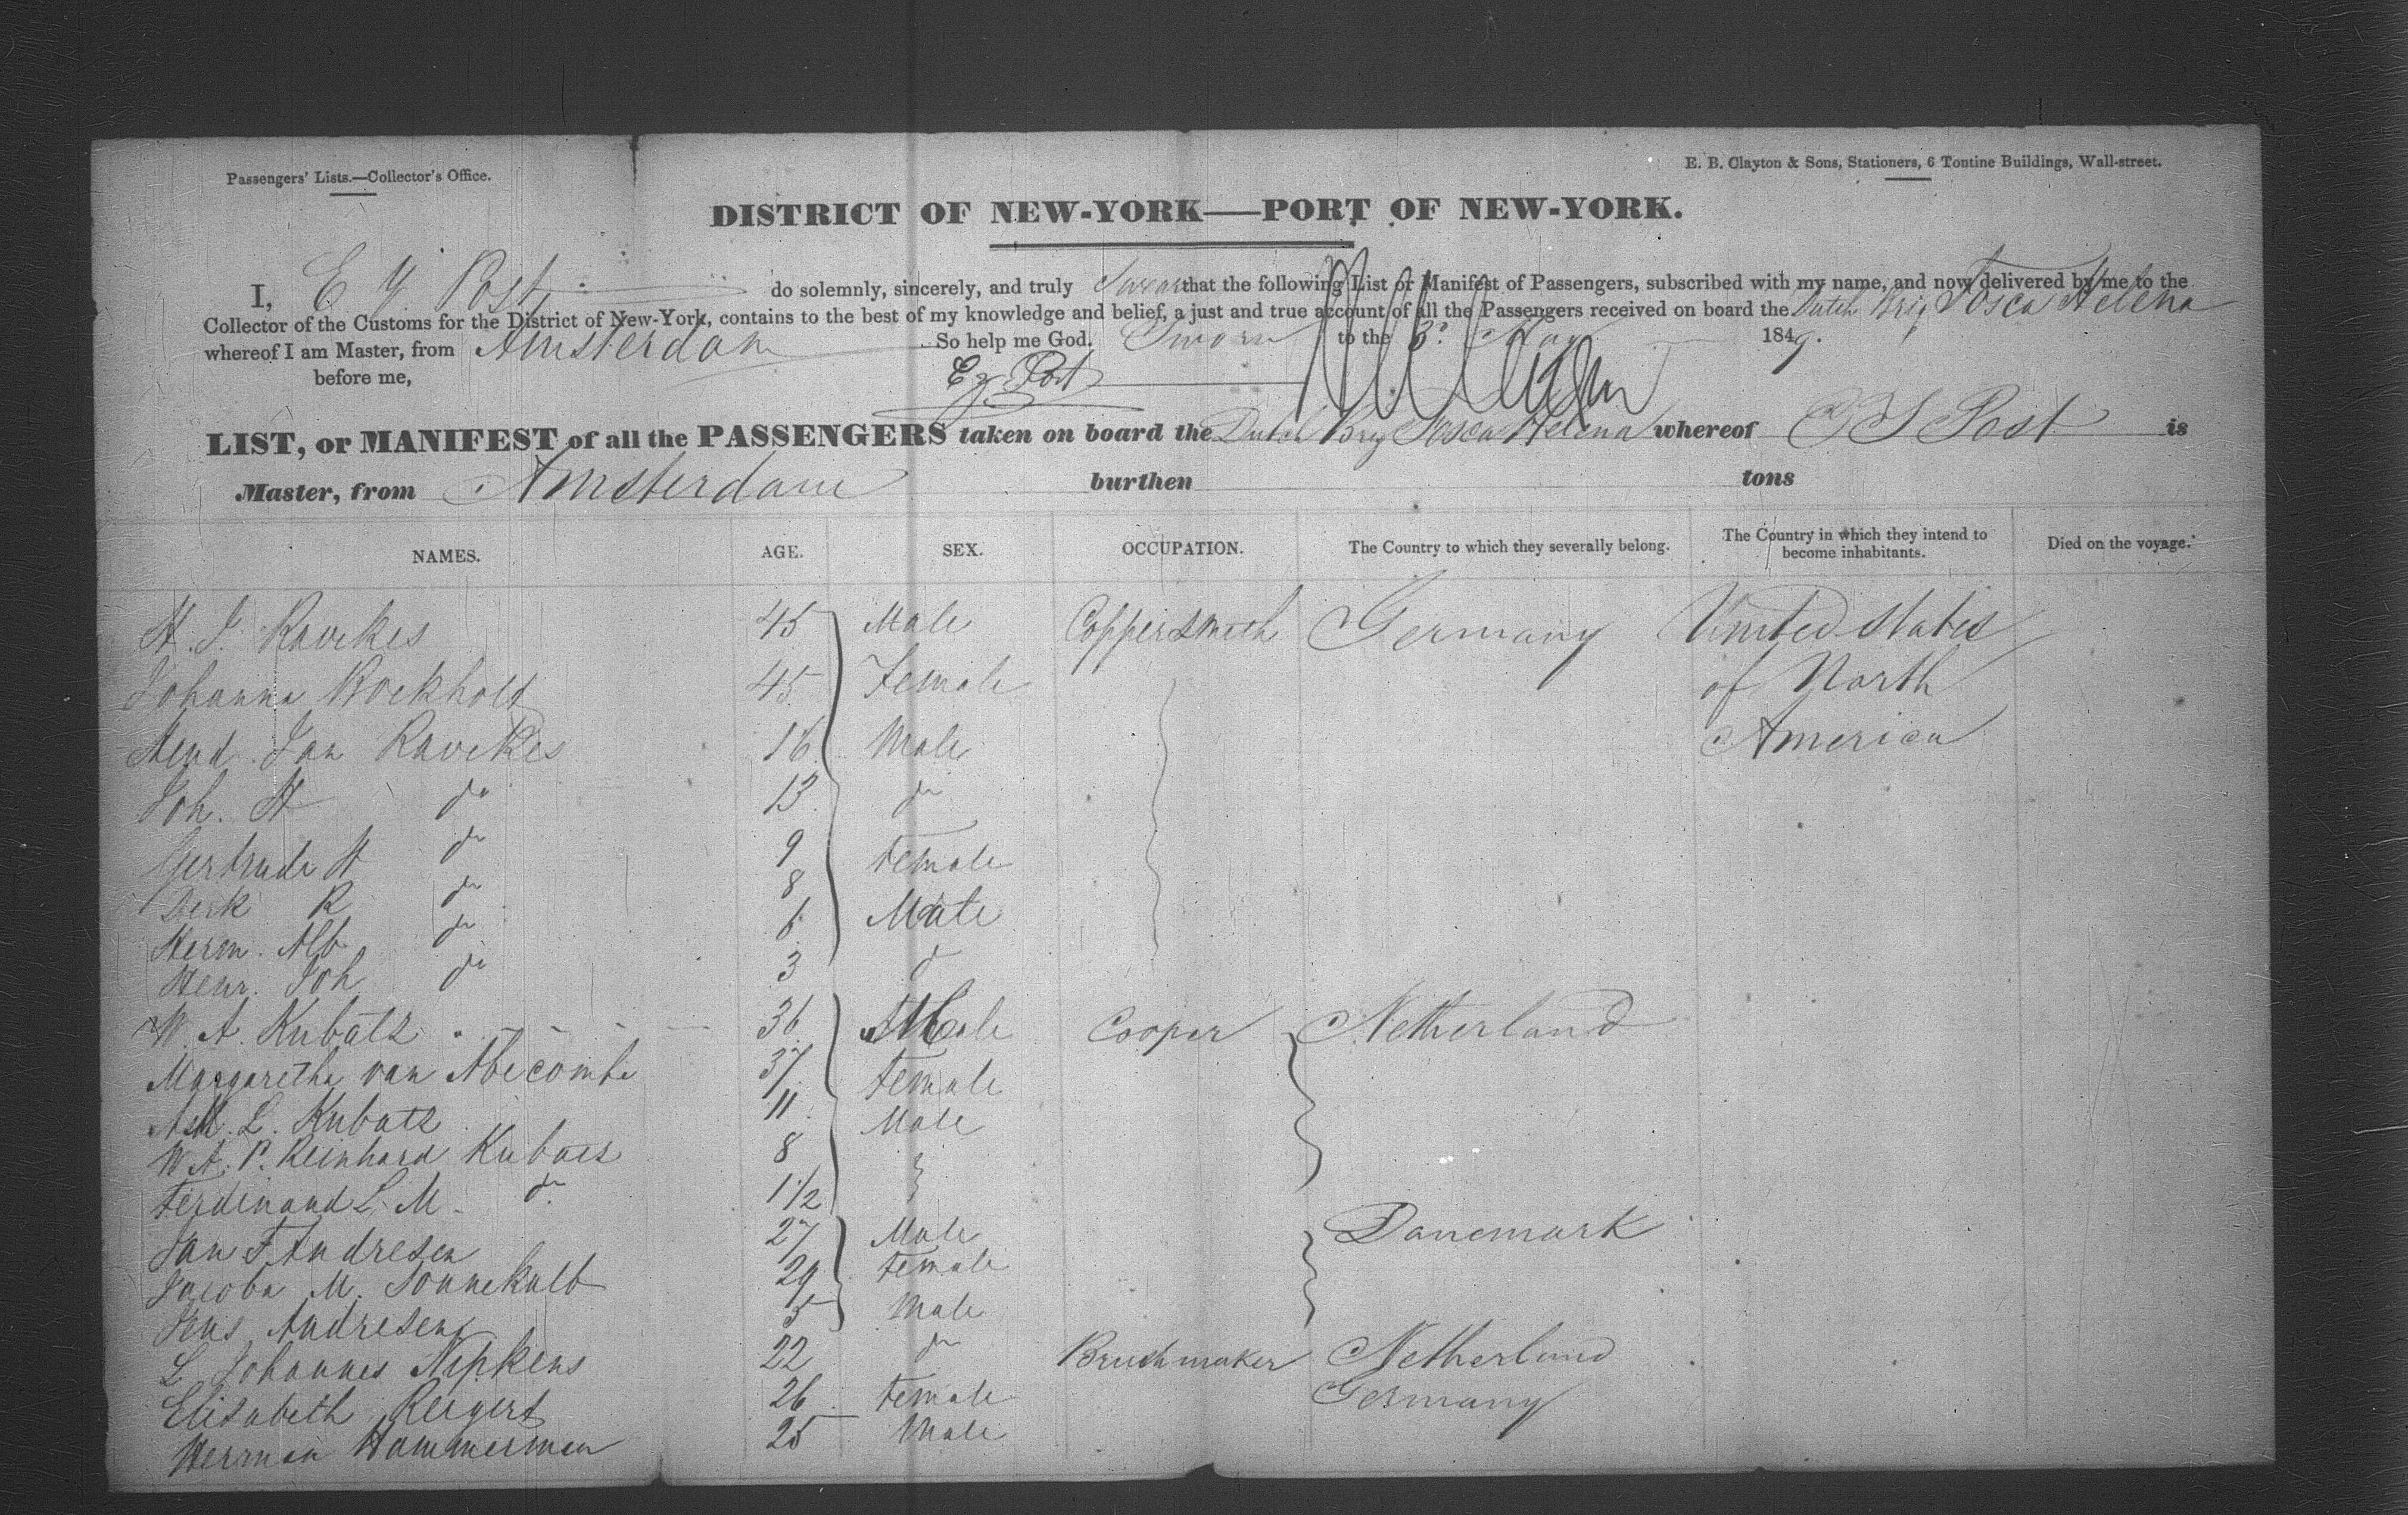 Passengers' Lists.—Collector's Office.
E. B. Clayton & Sons, Stationers, 6 Tontine Buildings, Wall-street.
DISTRICT OF NEW-YORK—PORT OF NEW-YORK.
I, E J Post do solemnly, sincerely, and truly Swear that the following List or Manifest of Passengers, subscribed with my name, and now delivered by me to the
Collector of the Customs for the District of New-York, contains to the best of my knowledge and belief, a just and true account of all the Passengers received on board the Dutch Brig Tosca Helena
whereof I am Master, from Amsterdam So help me God. Sworn to the 3d May 1849.
before me, Ej Post
LIST, or MANIFEST of all the PASSENGERS taken on board the Dutch Brig Tosca Helena whereof E J Post is
Master, from Amsterdam burthen tons
NAMES. AGE. SEX. OCCUPATION. The Country to which they severally belong. The Country in which they intend to become inhabitants. Died on the voyage.
H. J. Ravekes 45 Male Coppersmith Germany United States
Johanna Bockholt 45 Female of North
Hend. Jan Ravekes 16 Male America
Joh. H do 13 do
Gertrude H do 9 Female
Derk R do 8 Male
Herm. Alb do 6
Henr. Joh do 3 do
W. A. Kubatz 36 Male Cooper Netherland
Margaretha van Abecombe 37 Female
L. Kubatz 11 Male
W. A. P. Reinhard Kubatz 8
Ferdinand L. M. do 1 1/2
Jan F Andresen 27 Male Danemark
Jacoba M. Sonnekalb 29 Female
Jens Andresen 5 Male
L Johannes Nipkens 22 do Bruchmaker Netherland
Elisabeth Reigert 26 Female Germany
Herman Hammerman 25 Male